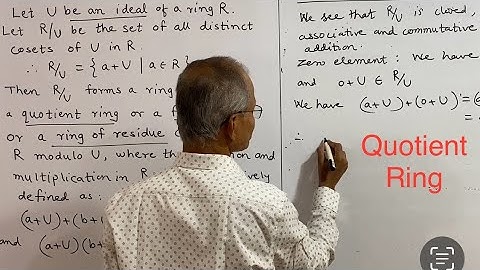 Let U be an ideal of a ring R.
Let R/U be the set of all distinct
cosets of U in R.
∴ R/U = { a+U | a ∈ R }
Then R/U forms a ring
a quotient ring or a f
or a ring of residue c
R modulo U, where the ion and
multiplication in R vely
defined as:
(a+U)+(b+
and (a+U)(b+
We see that R/U is closed,
associative and commutative
addition.
Zero element: We have
and 0+U ∈ R/U
We have (a+U)+(0+U)=(
=
∴
Quotient
Ring